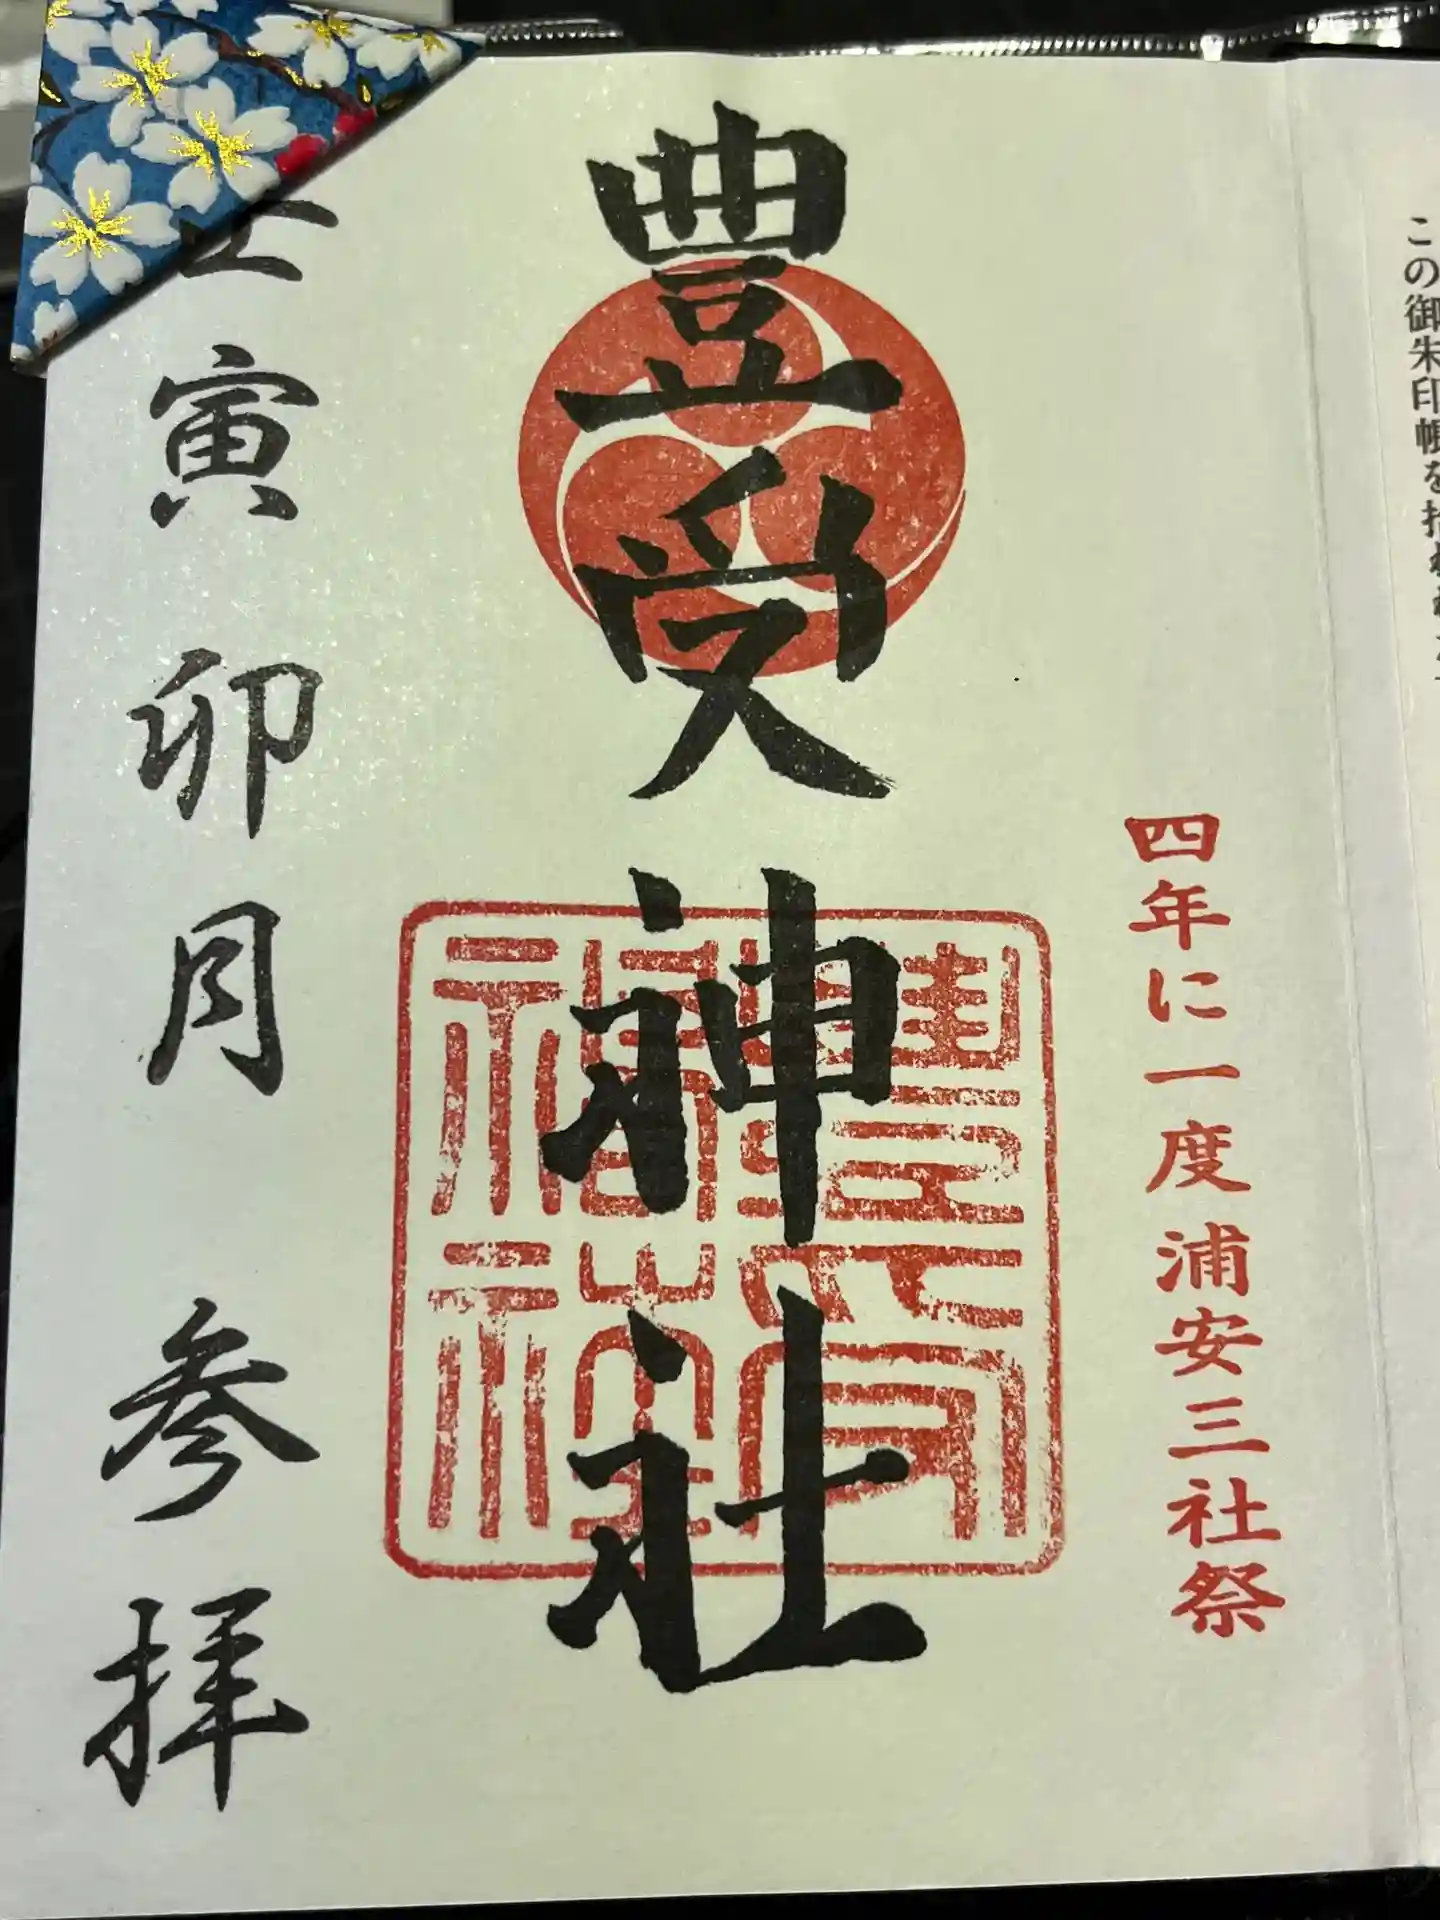 この御朱印帳を拾われ
四年に一度浦安三社祭
豊受神社
壬寅 卯月 参拝